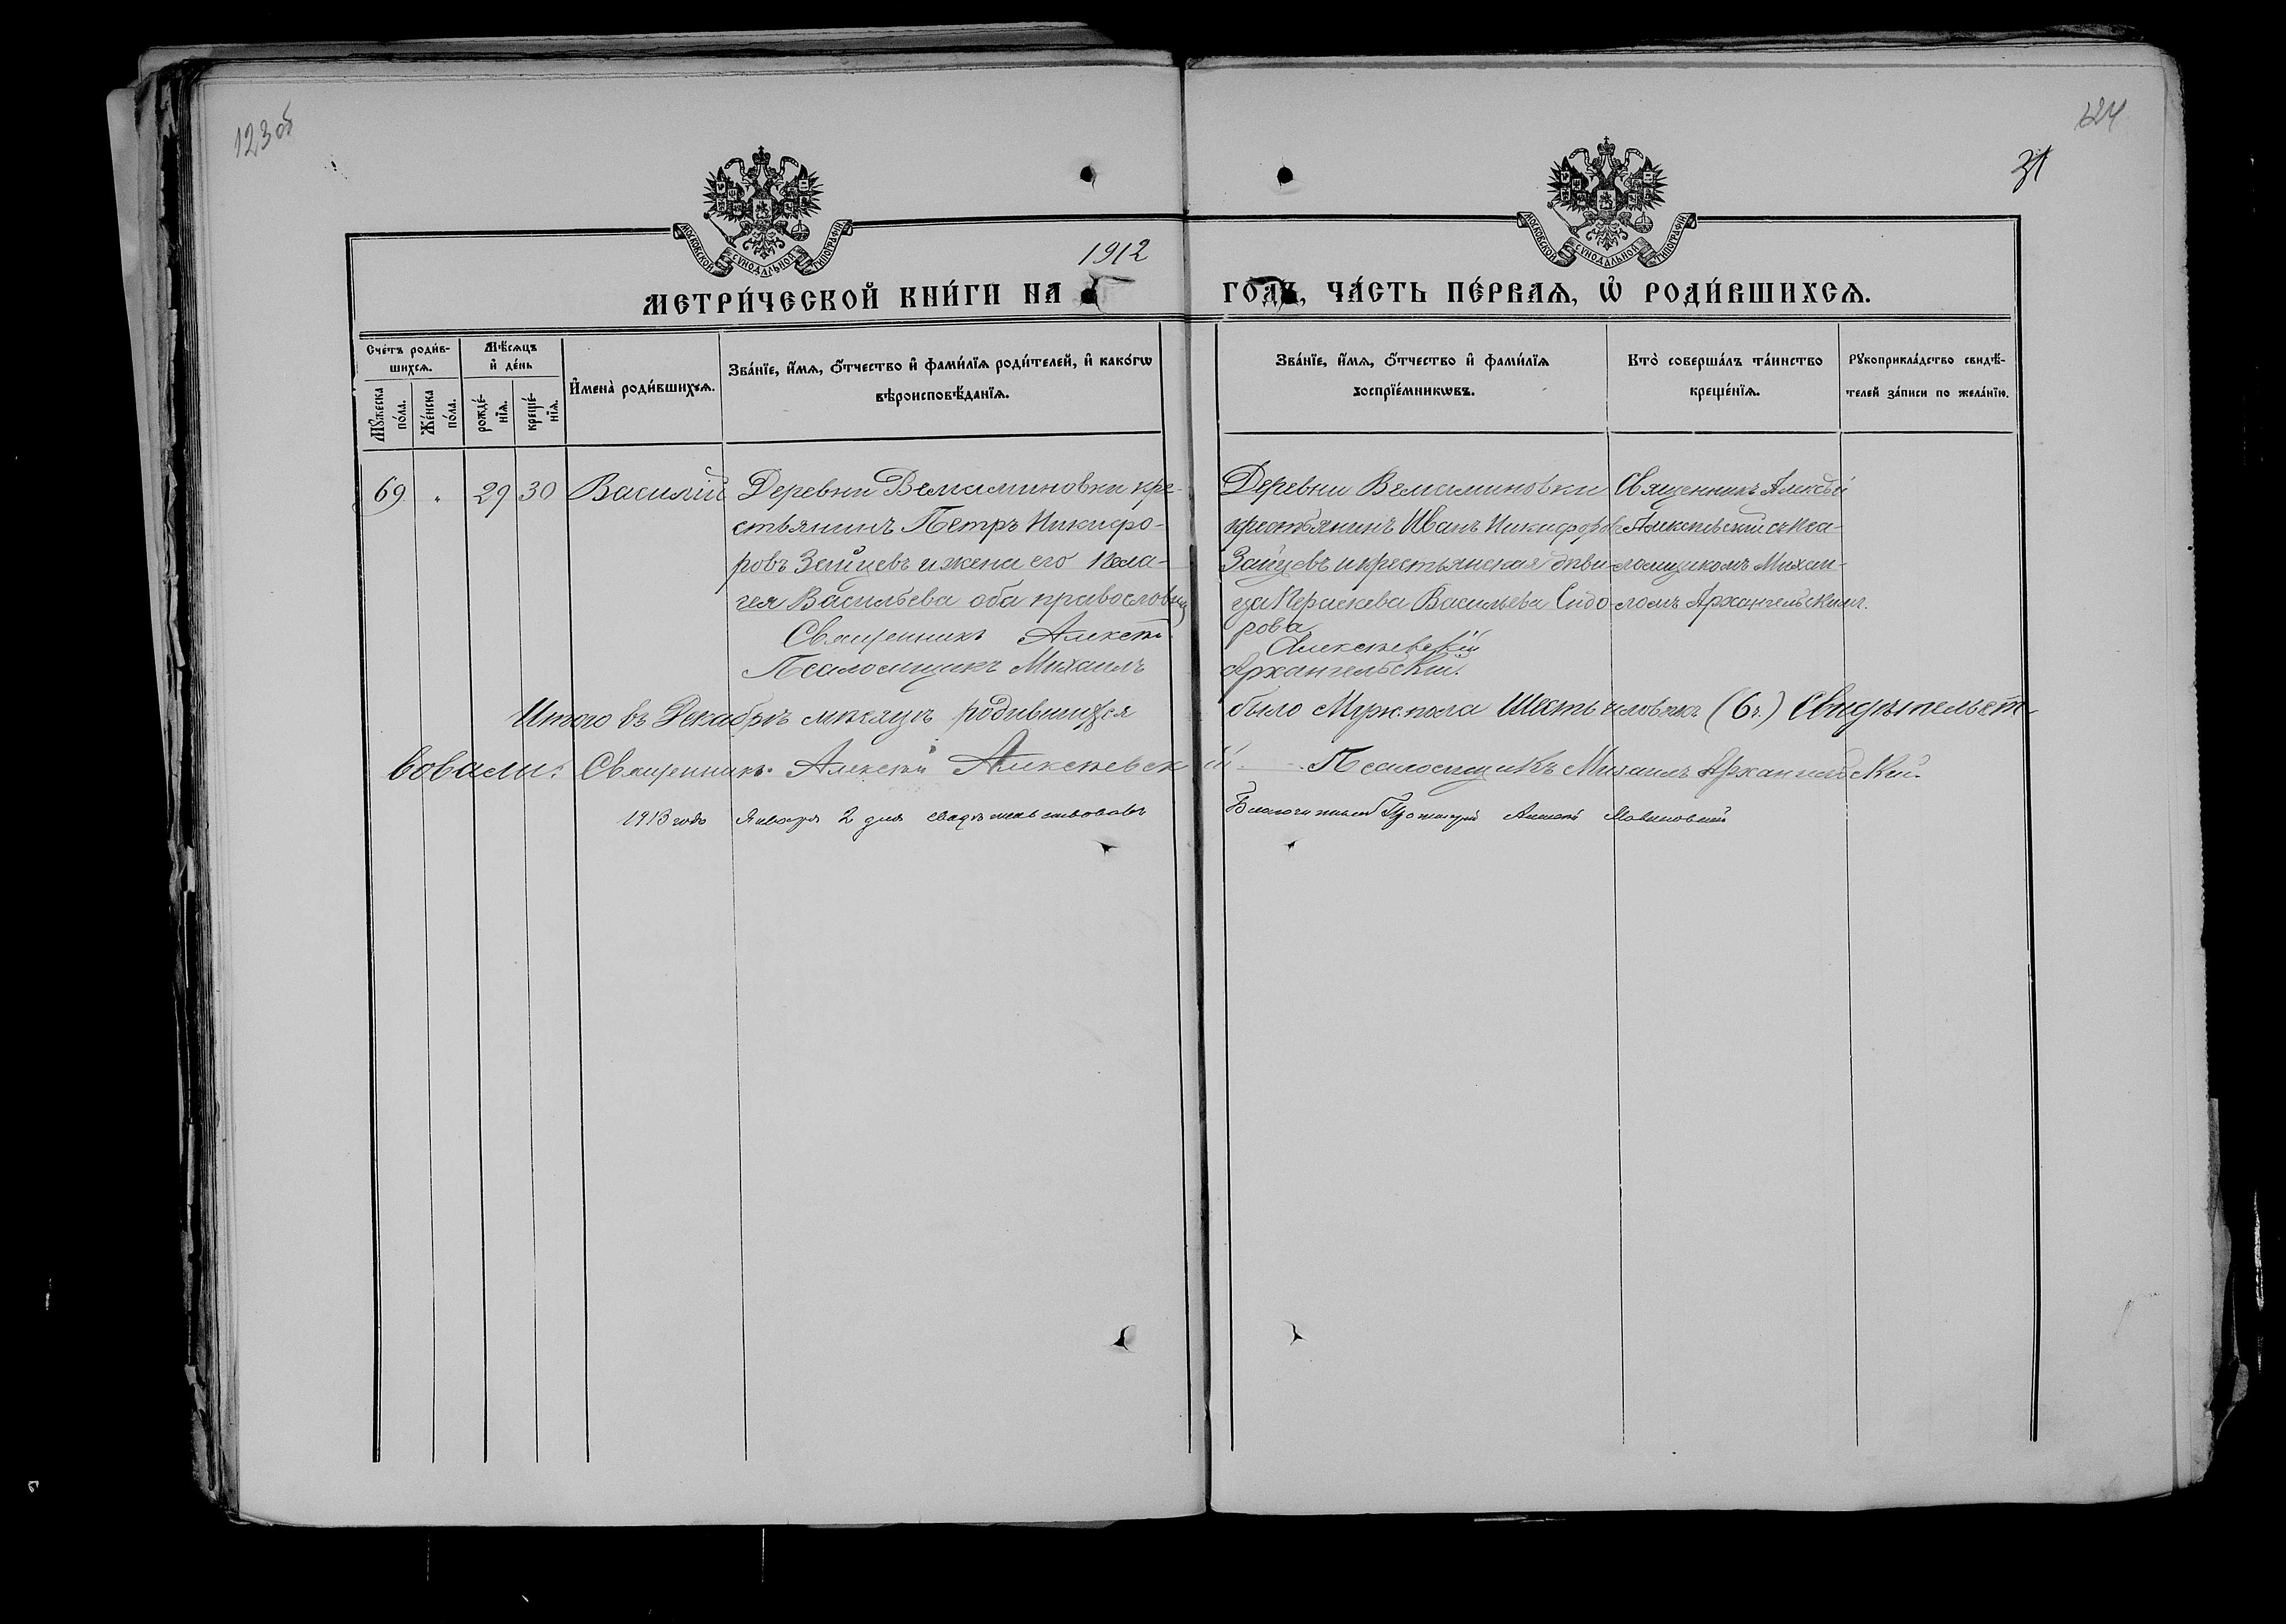 123об
124
31
МОСКОВСКОЙ СѴНОДАЛЬНОЙ ТИПОГРАФІИ
МОСКОВСКОЙ СѴНОДАЛЬНОЙ ТИПОГРАФІИ
1912
МЕТРИ́ЧЕСКОЙ КНИ́ГИ НА ГОДЪ, ЧА́СТЬ ПЕ́РВАЯ, Ѡ҆ РОДИ́ВШИХСЯ.
Сче́тъ роди́в-
шихся.
Мꙋ́жеска по́ла.
Же́нска по́ла.
Мѣ́сяцъ и҆ де́нь
рожде́-нїя.
креще́-нїя.
И҆мена̀ роди́вшихся.
Зва́нїе, и҆́мя, ѻ҆́тчество и҆ фами́лїя роди́телей, и҆ како́гѡ
вѣроисповѣ́данїя.
Зва́нїе, и҆́мя, ѻ҆́тчество и҆ фами́лїя
воспрїе́мникѡвъ.
Кто̀ соверша́лъ та́инство
креще́нїя.
Рꙋкоприкла́дство свидѣ́-
телей за́писи по жела́нїю.
69 " 29 30 Василій
Деревни Вельяминовки кре-
стьянинъ Петръ Никифо-
ровъ Зайцевъ и жена его Пела-
гея Васильева оба православны
Священникъ Алексѣй
Псаломщикъ Михаилъ
Деревни Вельяминовки
крестьянинъ Иванъ Никифоровъ
Зайцевъ и крестьянская дѣви-
ца Параскева Васильева Сидо-
рова
Алексѣевскій
Архангельскій.
Священникъ Алексѣй
Алексѣевскій съ пса-
ломщикомъ Михаи-
ломъ Архангельскимъ.
Итого въ Декабрѣ мѣсяцѣ родившихся было Муж. пола Шесть человѣкъ (6 ч.) Свидѣтельст-
вовали: Священникъ Алексѣй Алексѣевскій. Псаломщикъ Михаилъ Архангельскій.
1913 года Января 2 дня свидѣтельствовалъ Благочинный Протоіерей Алексѣй